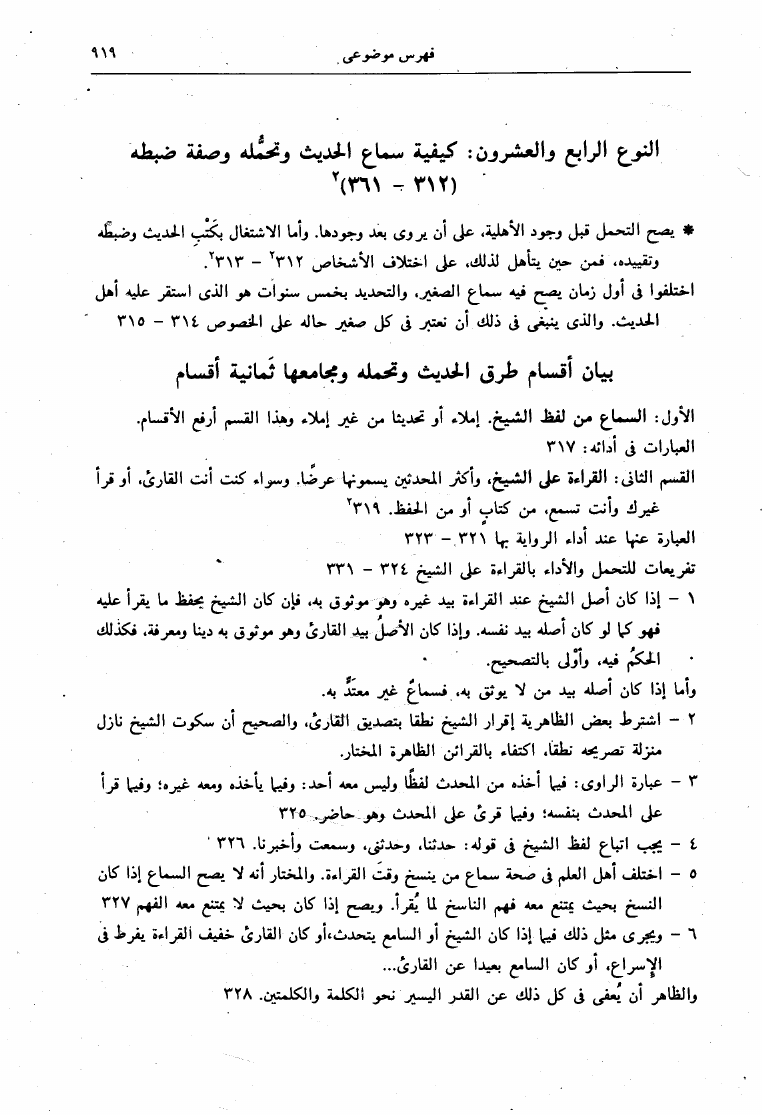 فهرس موضوعى ٩١٩
النوع الرابع والعشرون: كيفية سماع الحديث وتحمُّله وصفة ضبطه
(٣١٢ - ٣٦١)٢
* يصح التحمل قبل وجود الأهلية، على أن يروى بعد وجودها. وأما الاشتغال بكَتْبِ الحديث وضبطه
وتقييده، فمن حين يتأهل لذلك، على اختلاف الأشخاص ٣١٢٢ - ٣١٣٢.
اختلفوا فى أول زمان يصح فيه سماع الصغير، والتحديد بخمس سنوات هو الذى استقر عليه أهل
الحديث. والذى ينبغى فى ذلك أن نعتبر فى كل صغير حاله على الخصوص ٣١٤ - ٣١٥
بيان أقسام طرق الحديث وتحمله ومجامعها ثَمانية أقسام
الأول: السماع من لفظ الشيخ. إملاء أو تحديثا من غير إملاء وهذا القسم أرفع الأقسام.
العبارات فى أدائه: ٣١٧
القسم الثانى: القراءة على الشيخ، وأكثر المحدثين يسمونها عرضًا. وسواء كنت أنت القارئ، أو قرأ
غيرك وأنت تسمع، من كتابٍ أو من الحفظ. ٣١٩٢
العبارة عنها عند أداء الرواية بها ٣٢١ - ٣٢٣
تفريعات للتحمل والأداء بالقراءة على الشيخ ٣٢٤ - ٣٣١
١ - إذا كان أصل الشيخ عند القراءة بيد غيره وهو موثوق به، فإن كان الشيخ يحفظ ما يقرأ عليه
فهو كما لو كان أصله بيد نفسه. وإذا كان الأصلُ بيد القارئ وهو موثوق به دينا ومعرفة، فكذلك
الحكمُ فيه، وأوْلى بالتصحيح.
وأما إذا كان أصله بيد من لا يوثق به، فسماعٌ غير معتَدٍّ به.
٢ - اشترط بعض الظاهرية إقرار الشيخ نطقا بتصديق القارئ، والصحيح أن سكوت الشيخ نازل
منزلة تصريحه نطقا، اكتفاء بالقرائن الظاهرة المختار.
٣ - عبارة الراوى: فيما أخذه من المحدث لفظًا وليس معه أحد: وفيما يأخذه ومعه غيره؛ وفيما قرأ
على المحدث بنفسه؛ وفيما قرئ على المحدث وهو حاضر. ٣٢٥
٤ - يجب اتباع لفظ الشيخ فى قوله: حدثنا، وحدثنى، وسمعت وأخبرنا. ٣٢٦
٥ - اختلف أهل العلم فى صحة سماع من ينسخ وقت القراءة. والمختار أنه لا يصح السماع إذا كان
النسخ بحيث يمتنع معه فهم الناسخ لما يُقرأ. ويصح إذا كان بحيث لا يمتنع معه الفهم ٣٢٧
٦ - ويجرى مثل ذلك فيما إذا كان الشيخ أو السامع يتحدث، أو كان القارئ خفيف القراءة يفرط فى
الإسراع، أو كان السامع بعيدا عن القارئ...
والظاهر أن يُعفى فى كل ذلك عن القدر اليسير نحو الكلمة والكلمتين. ٣٢٨